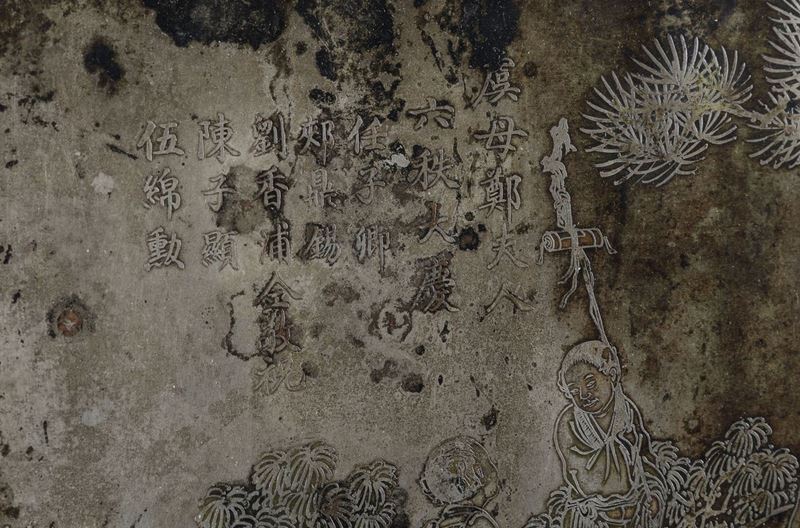 虞母鄭夫人
六秩大慶
任子卿
郟鼎錫
劉香浦
陳子顯
伍綿勳
仝敬祝